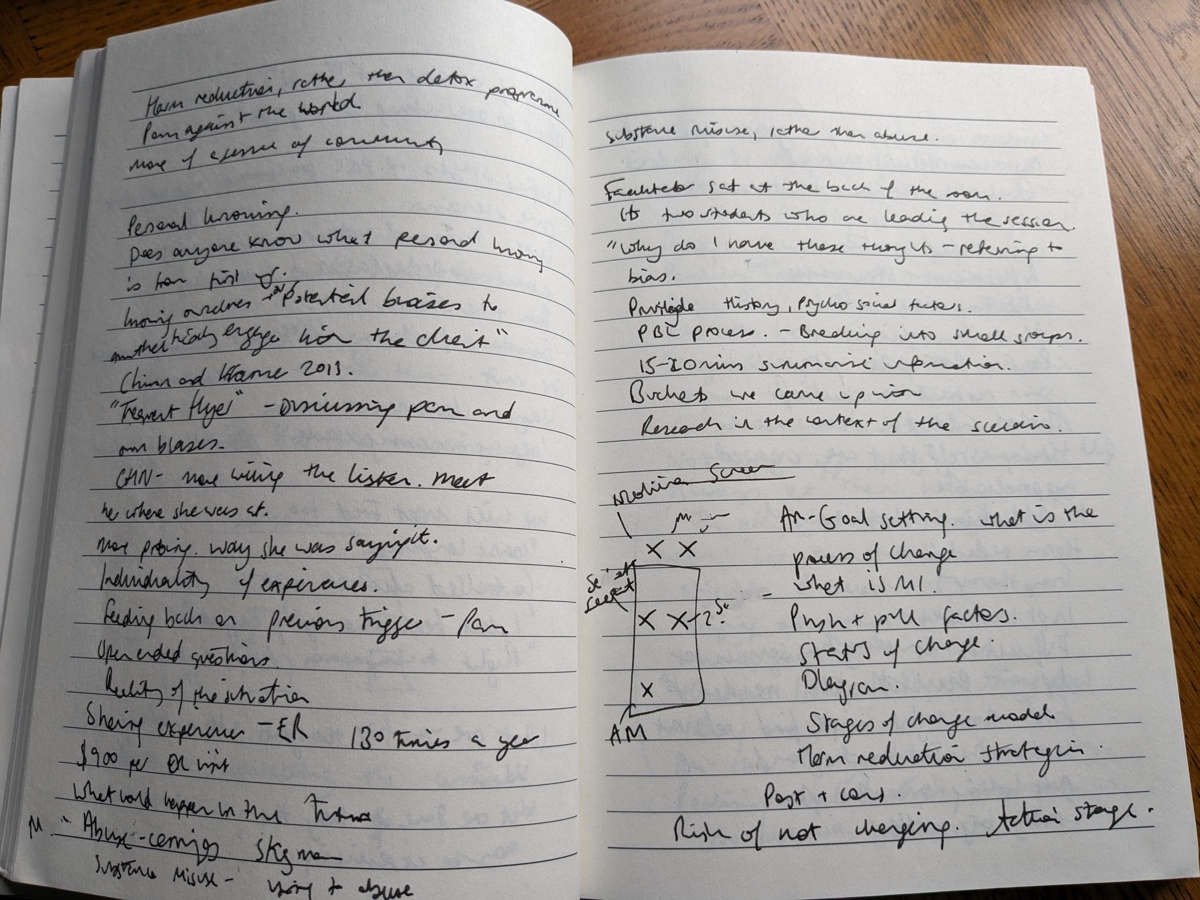 Harm reduction, rather than detox programme
Pam against the world.
more of a sense of community
Personal knowing.
Does anyone know what personal knowing
is
knowing ourselves + our Potential biases to
authentically engage with the client"
Chinn and 2013.
"Frequent flyer" - Discussing pam and
own biases.
CHN - more willing the listen. meet
her where she was at.
more probing. way she was saying it.
Individuality of experiences.
feeding back on previous trigger - Pam
Open ended questions.
Reality of the situation
Sharing experiences - ER 130 times a year
$900 per ER visit
what would happen in the future
M - Abuse - carrys stigma
Substance misuse - to abuse
Substance misuse, rather than abuse.
Facilitator sat at the back of the room.
Its two students who are leading the session.
"Why do I have these thoughts - referring to
bias.
Privilege History, Psycho social factors.
PBL process. - Breaking into small groups.
15-20mins summarise information.
Buckets we came up with
Research in the context of the scenario.
Screen
M
X X
X X - ?
X
AM
AM - Goal setting. what is the
process of change
what is MI.
Push + pull factors.
of change.
Diagram.
Stages of change model
Harm reduction strategies.
+ cons.
Risk of not changing. Action stage.